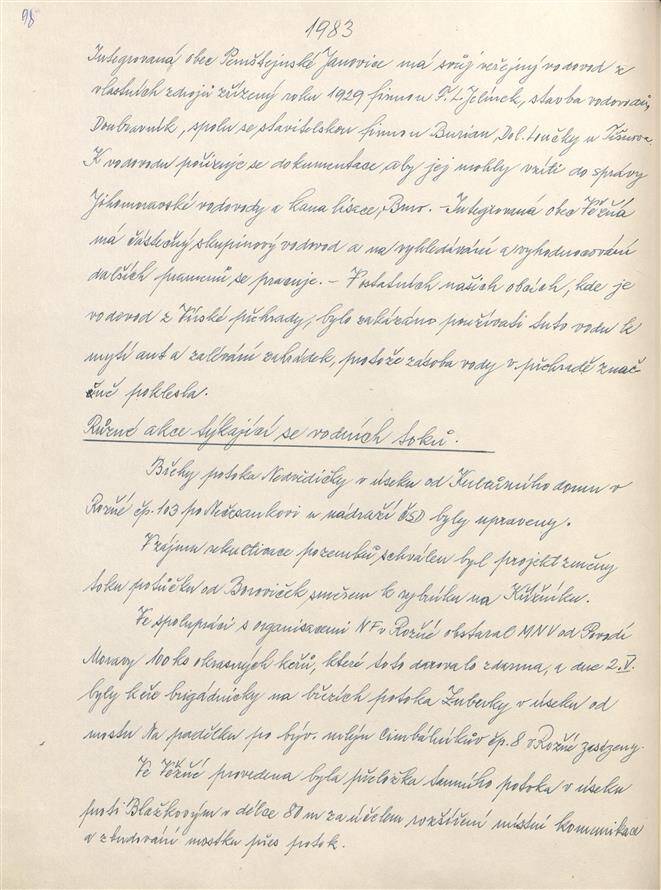 98
1983
Integrovaná obec Pernštejnské Janovice má svůj veřejný vodovod z
vlastních zdrojů zřízený roku 1929 firmou F. L. Jelínek, stavba vodovodů,
Doubravník, spolu se stavitelskou firmou Burian, Dol. Loučky u Tišnova.
K vodovodu pořizuje se dokumentace, aby jej mohly vzíti do správy
Jihomoravské vodovody a kanalisace, Brno. – Integrovaná obec Věžná
má částečný skupinový vodovod a na vyhledávání a vyhodnocování
dalších pramenů se pracuje. – V ostatních našich obcích, kde je
vodovod z Vírské přehrady, bylo zakázáno používati tuto vodu k
mytí aut a zalévání zahrádek, protože zásoba vody v přehradě znač-
ně poklesla.
Různé akce týkající se vodních toků.
Břehy potoka Nedvědičky v úseku od Kulturního domu v
Rožné čp. 103 po Nečesankovi u nádraží ČSD byly upraveny.
V zájmu rekultivace pozemků schválen byl projekt změny
toku potůčku od Boroviček směrem k rybníku na
Ve spolupráci s organisacemi NF v Rožné obstaral MNV od Povodí
Moravy 100 ks okrasných keřů, které toto darovalo zdarma, a dne 2.V.
byly keře brigádnicky na březích potoka Zuberky v úseku od
mostu Na padělku po býv. mlýn Cimbálníkův čp. 8 v Rožné zasázeny.
Ve Věžné provedena byla přeložka tamního potoka v úseku
proti Blažkovým v délce 80 m za účelem rozšíření místní komunikace
a zbudování mostku přes potok.